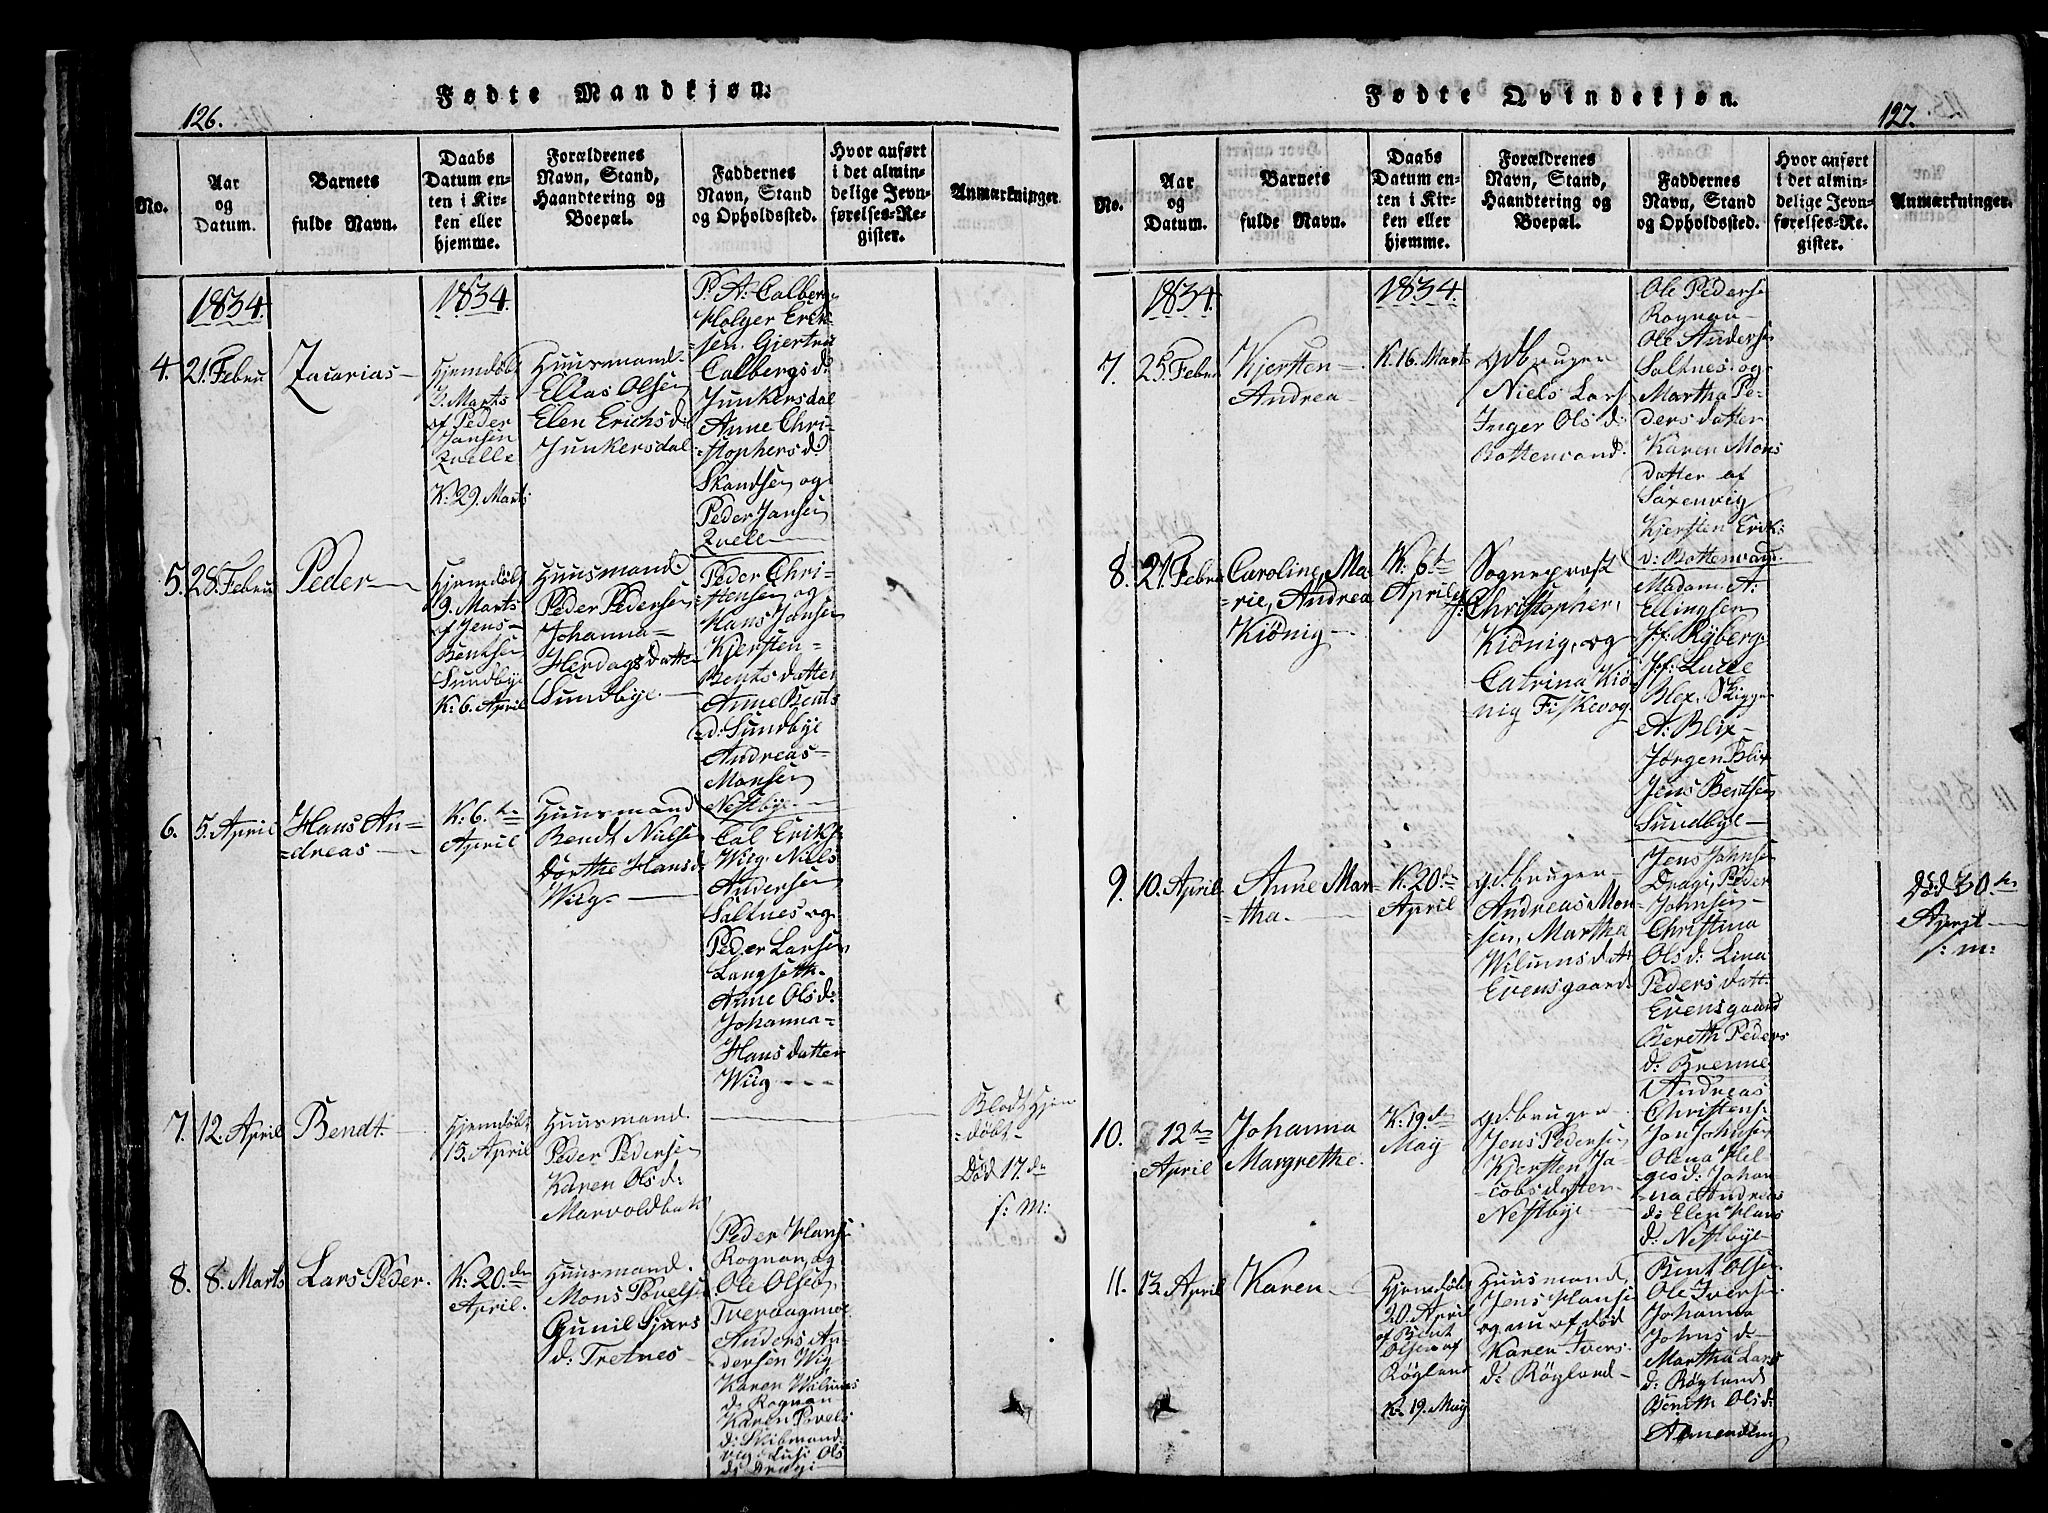 Fødte Mandkjøn.
126.
No.
Aar
og
Datum.
Barnets
fulde Navn.
Daabs
Datum en-
ten i Kir-
ken eller
hjemme.
Forældrenes
Navn, Stand,
Haandtering og
Boepæl.
Faddernes
Navn, Stand
og Opholdssted.
Hvor anført
i det almin-
delige Jevn-
førelses-Re-
gister.
Anmærkninger
1834.
1834.
4.
21. Febru
Zacarias
Hjemdøbt
2. Marts
af Peder
Jansen
Qvelle
K: 29. Marts
Huusmand.
Elias Olsen
Elen Erichsd:
Junkersdal
P. A: Calberg
Holger Erik-
sen. Gjertru
Calbergs d:
Junkersdal
Anne Chri-
stophers d:
Skandsen og
Peder Jansen
Qvelle
5.
28. Febru
Peder
Hjemdøbt
9. Marts
af Jens
Bentsen
Sundbye
K: 6. April
Huusmand.
Peder Pedersen
Johanna
Herdags datter
Sundbye.
Peder Chri-
stensen og
Hans Jansen
Kjersten
Bents datter
Anne Bents
d: Sundbye
Andreas
Monsen
Nestbye
6.
5. April
Hans An-
dreas
K: 6. te
April
Huusmand
Bendt Nielse
Dorthe Hansd
Wiig.
Cal Eriks:
Wiig. Niels
Andersen
Saltnes og
Peder Larsen
Langseth.
Anne Olsd:
Johanna
Hans datter
Wiig
7.
12. April
Bendt.
Hjemdøbt
15. April
Huusmand.
Peder Pedersen
Karen Olsd:
Marvoldbak
Blot Hjem
døbt
Død 17. de
s: m:
8.
8. Marts
Lars Peder.
K: 20. de
April.
Huusmand.
Mons Povelse
Gunil Sjurs
d: Tretnes
Peder Hans
Rognan, og
Ole Olsen
Tveraagmoe
Anders An-
dersen Wig
Karen Wilums
d: Rognan
Karen Povels
d: Skibmand:
Olsd
d: Dragi
Fødte Qvindekjøn.
127.
No.
Aar
og
Datum.
Barnets
fulde Navn.
Daabs
Datum en-
ten i Kir-
ken eller
hjemme.
Forældrenes
Navn, Stand,
Haandtering og
Boepæl.
Faddernes
Navn, Stand
og Opholdssted.
Hvor anført
i det almin-
delige Jevn-
førelses-Re-
gister.
Anmærkninger.
1834.
1834.
7.
25. Febru
Kjersten
Andrea
K: 16. Marts
gdbruger
Niels Lars
Inger Ols d:
Bottenvand:
Ole Peders
Rognan
Ole Anderse
Saltnes og
Martha Pe-
ders datter
Karen Mons
datter af
Saxenvig
Kjersten Erik:
d: Bottenvand.
8.
21. Febru
Caroline, Ma-
rie, Andrea
Kiønig
K: 6 te
April
Sogneprest
Christopher,
Kiønig, og
Catrina Kiø
nig Fiskevog
Madam A.
Ellingsen
Jf: Ryberg
Jf: Lucie
Blix, Skipper
A: Blix
Jørgen Blix
Jens Bentsen
Sundbye
9.
10. April
Anne Mar-
tha.
K: 20 de
April
gdbruger
Andreas Mon
sen, Martha
Wilumsdat
Evensgaard:
Jens Johnse
Dragi, Peder
Johnsen
Christina
Olsd: Lina
Peders datt.
Evensgaard
Bereth Peders
d: Brenne
Død 30 te
April
s: m:
10.
12 te
April
Johanna
Margrethe.
K: 19. de
May
gdbruger
Jens Pederse
Kjersten Ja-
cobs datter
Nestbye
Andreas
Christens:
Jon Johnsen
Olena Hel
gesd: Johan
na Andreas
d: Elen Hans
d: Nestbye
11.
13. April
Karen
Hjemdøbt
20. April
af Bent
Olsen af
Røgland
K: 19. May
Huusmand,
Jens Hanse
og nu af død
Karen Ivers
d: Røgland
Bent Olse
Ole Iverse
Johanna
Johns d
Martha Lars
d: Røgland
Bereth Olsd:
Almending